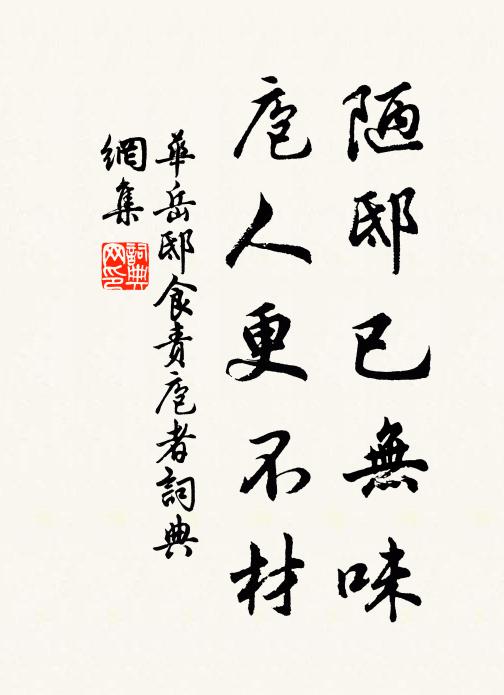 陋邸已無味
庖人更不材
華岳邸食責庖者詞典
網集
詞典
网印